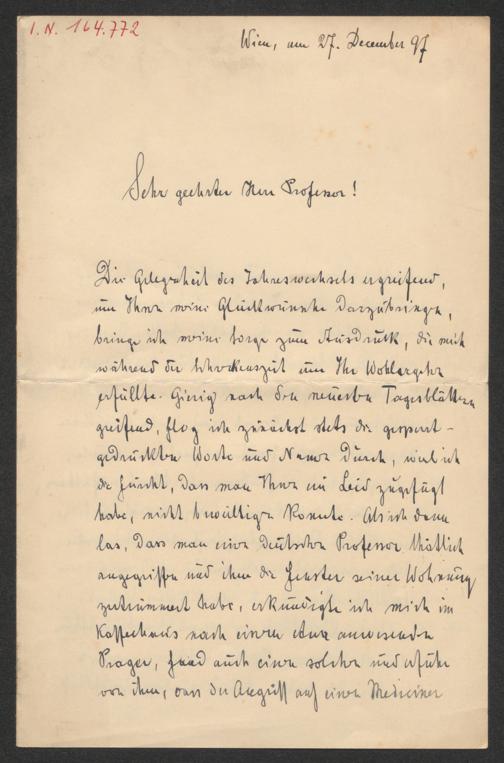 I. N. 164.772
Wien, am 27. December 97
Sehr geehrter Herr Professor!
Die Gelegenheit des Jahreswechsels ergreifend,
um Ihnen meine Glückwünsche darzubringen,
bringe ich meine Sorge zum Ausdruck, die mich
während der Schreckenszeit um Ihr Wohlergehn
erfüllte. Gierig nach den neuesten Tagesblättern
greifend, flog ich zunächst stets die gesperrt-
gedruckten Worte und Namen durch, weil ich
die Furcht, dass man Ihnen ein Leid zugefügt
habe, nicht bewältigen konnte. Als ich dann
las, dass man einen deutschen Professor thätlich
angegriffen und ihm die Fenster seiner Wohnung
zertrümmert habe, erkundigte ich mich im
Kaffeehaus nach einem etwa anwesenden
Prager, fand auch einen solchen und erfuhr
von ihm, dass der Angriff auf einen Mediciner